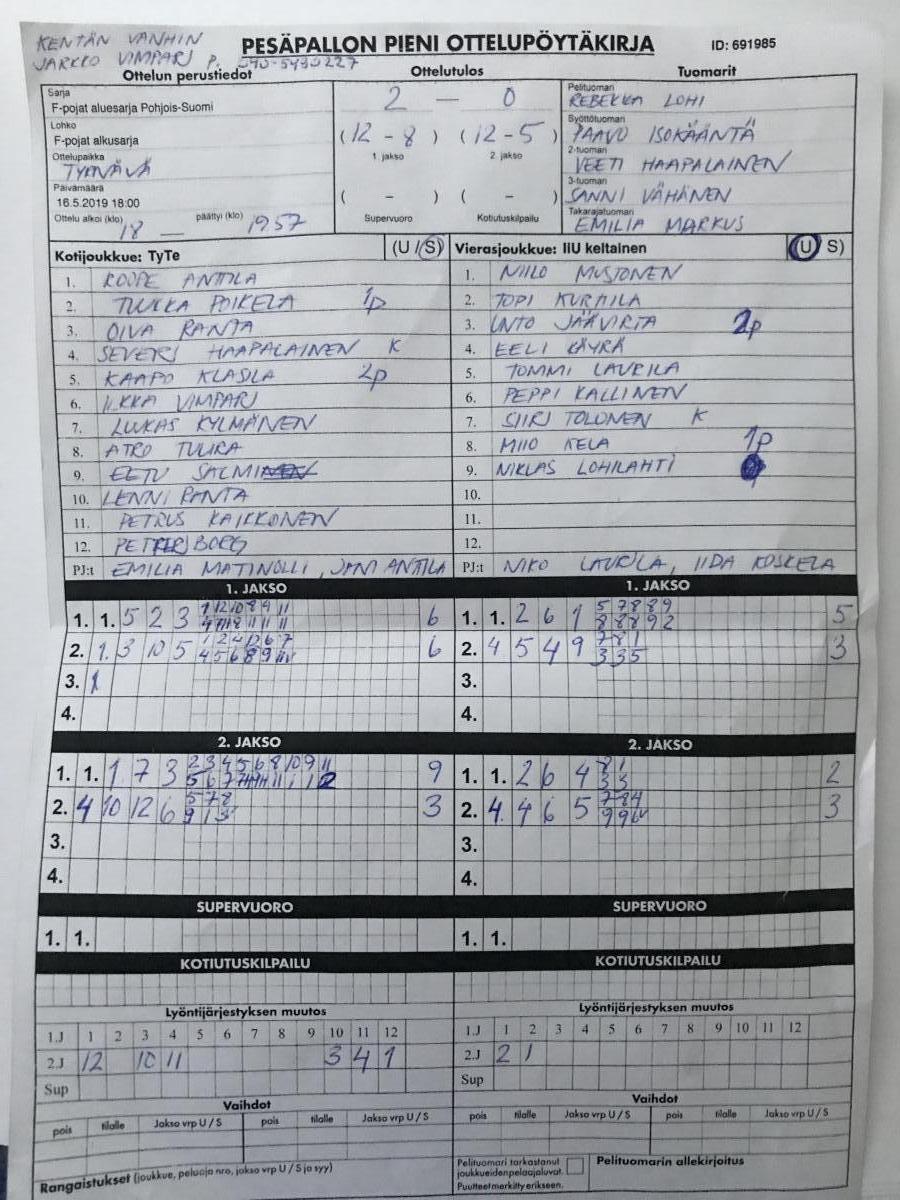 KENTÄN VANHIN
JARKKO VIMPARI P.
PESÄPALLON PIENI OTTELUPÖYTÄKIRJA
ID: 691985
Ottelun perustiedot
Sarja
F-pojat aluesarja Pohjois-Suomi
Lohko
F-pojat alkusarja
Ottelupaikka
TYRNÄVÄ
Päivämäärä
16.5.2019 18:00
Ottelu alkoi (klo) 18 — päättyi (klo) 19.57
Ottelutulos
2 — 0
(12 - 8) (12 - 5)
1. jakso 2. jakso
( - ) ( - )
Supervuoro Kotiutuskilpailu
Tuomarit
Pelituomari
REBEKKA LOHI
Syöttötuomari
PAAVO ISOKÄÄNTÄ
2-tuomari
VEETI HAAPALAINEN
3-tuomari
SANNI VÄHÄNEN
Takarajatuomari
EMILIA MARKUS
Kotijoukkue: TyTe (U / S)
1. ROOPE ANTTILA
2. TUUKKA POIKELA 1p
3. OIVA RANTA
4. SEVERI HAAPALAINEN K
5. KAAPO KLASILA 2p
6. ILKKA VIMPARI
7. LUUKAS KYLMÄNEN
8. ATRO TUURA
9. EETU SALMINEN
10. LENNI RANTA
11. PETRUS KAIKKONEN
12. PETTERI BORG
PJ:t EMILIA MATINOLLI, JANI ANTTILA
Vierasjoukkue: IIU keltainen (U S)
1. NIILO MUSTONEN
2. TOPI KURTILA
3. UNTO JÄÄVIRTA 2p
4. EELI KÄYRÄ
5. TOMMI LAURILA
6. PEPPI KALLINEN
7. SIIRI TOLONEN K
8. MIIO KELA 1p
9. NIKLAS LOHILAHTI
10.
11.
12.
PJ:t NIKO LAURILA, IIDA KOSKELA
1. JAKSO
1. 1. 5 2 3 6
2. 1. 3 10 5 6
3. 1
4.
1. JAKSO
1. 1. 2 6 1 5 7 8 8 9 5
8 8 8 9 2
2. 4 5 4 9 7 8 1 3
3 3 5
3.
4.
2. JAKSO
1. 1. 1 7 3 2 3 4 5 6 8 10 9 11 9
2. 4 10 12 6 5 7 8 3
3.
4.
2. JAKSO
1. 1. 2 6 4 8 1 2
3 3
2. 4. 4 6 5 7 8 4 3
3.
4.
SUPERVUORO
1. 1.
SUPERVUORO
1. 1.
KOTIUTUSKILPAILU
KOTIUTUSKILPAILU
Lyöntijärjestyksen muutos
1.J 1 2 3 4 5 6 7 8 9 10 11 12
2.J 12 10 11 3 4 1
Sup
Lyöntijärjestyksen muutos
1.J 1 2 3 4 5 6 7 8 9 10 11 12
2.J 2 1
Sup
Vaihdot
pois tilalle Jakso vrp U / S pois tilalle Jakso vrp U / S
Vaihdot
pois tilalle Jakso vrp U / S pois tilalle Jakso vrp U / S
Rangaistukset (joukkue, pelaaja nro, jakso vrp U / S ja syy)
Pelituomari tarkastanut
joukkueiden pelaajaluvat.
Puutteet merkitty erikseen.
Pelituomarin allekirjoitus